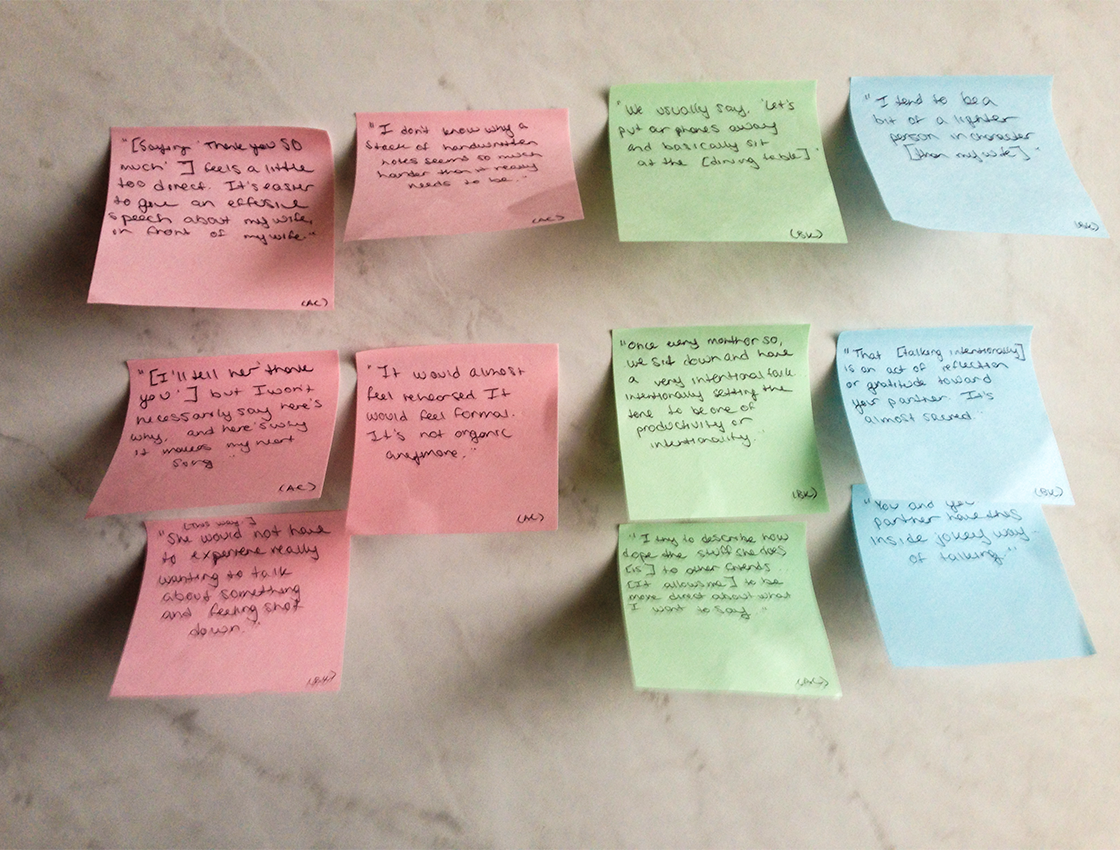 "[Saying 'Thank you SO
much' '] feels a little
too direct. It's easier
to give an effusive
speech about my wife,
in front of my wife."
(AC)
"I don't know why a
stack of handwritten
notes seems so much
harder than it really
needs to be."
(AC)
"We usually say, 'Let's
put our phones away
and basically sit
at the [dining table]'"
(BK)
"I tend to be a
bit of a lighter
person in character
[than my wife]"
(BK)
"[I'll tell her 'thank
you'] but I won't
necessarily say here's
why, and here's why
it makes my heart
sing"
(AC)
"It would almost
feel rehearsed It
would feel formal.
It's not organic
anymore."
(AC)
"Once every month or so,
we sit down and have
a very intentional talk
intentionally setting the
tone to be one of
productivity or
intentionality."
(BK)
"That [talking intentionally]
is an act of reflection
or gratitude toward
your partner. It's
almost sacred."
(BK)
[this way]
"She would not have
to experience really
wanting to talk
about something
and feeling shot
down."
"I try to describe how
dope the stuff she does
[is] to other friends...
[It allows me] to be
more direct about what
I want to say."
"You and your
partner have this
inside jokey way
of talking."